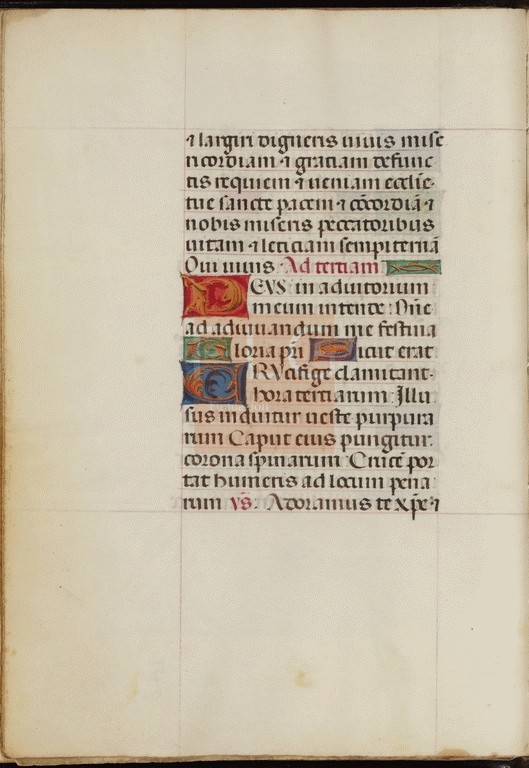 ⁊ largiri digneris uiuis mise
ricordiam ⁊ gratiam defunc
tis requiem ⁊ ueniam ecclie·
tue sancte pacem ⁊ cōcordiā ⁊
nobis miseris peccatoribus
uitam ⁊ leticiam sempiternā
Qui uiuis · Ad tertiam
DEVS in adiutorium
meum intende : Dn̄e
ad adiuuandum me festina
Gloria pri Sicut erat
CRVcifige clamitant·
hora tertiarum : Illu
sus induitur ueste purpura
rum Caput eius pungitur·
corona spinarum Crucē por
tat humeris ad locum pena
rum vs. Adoramus te xp̄e ⁊